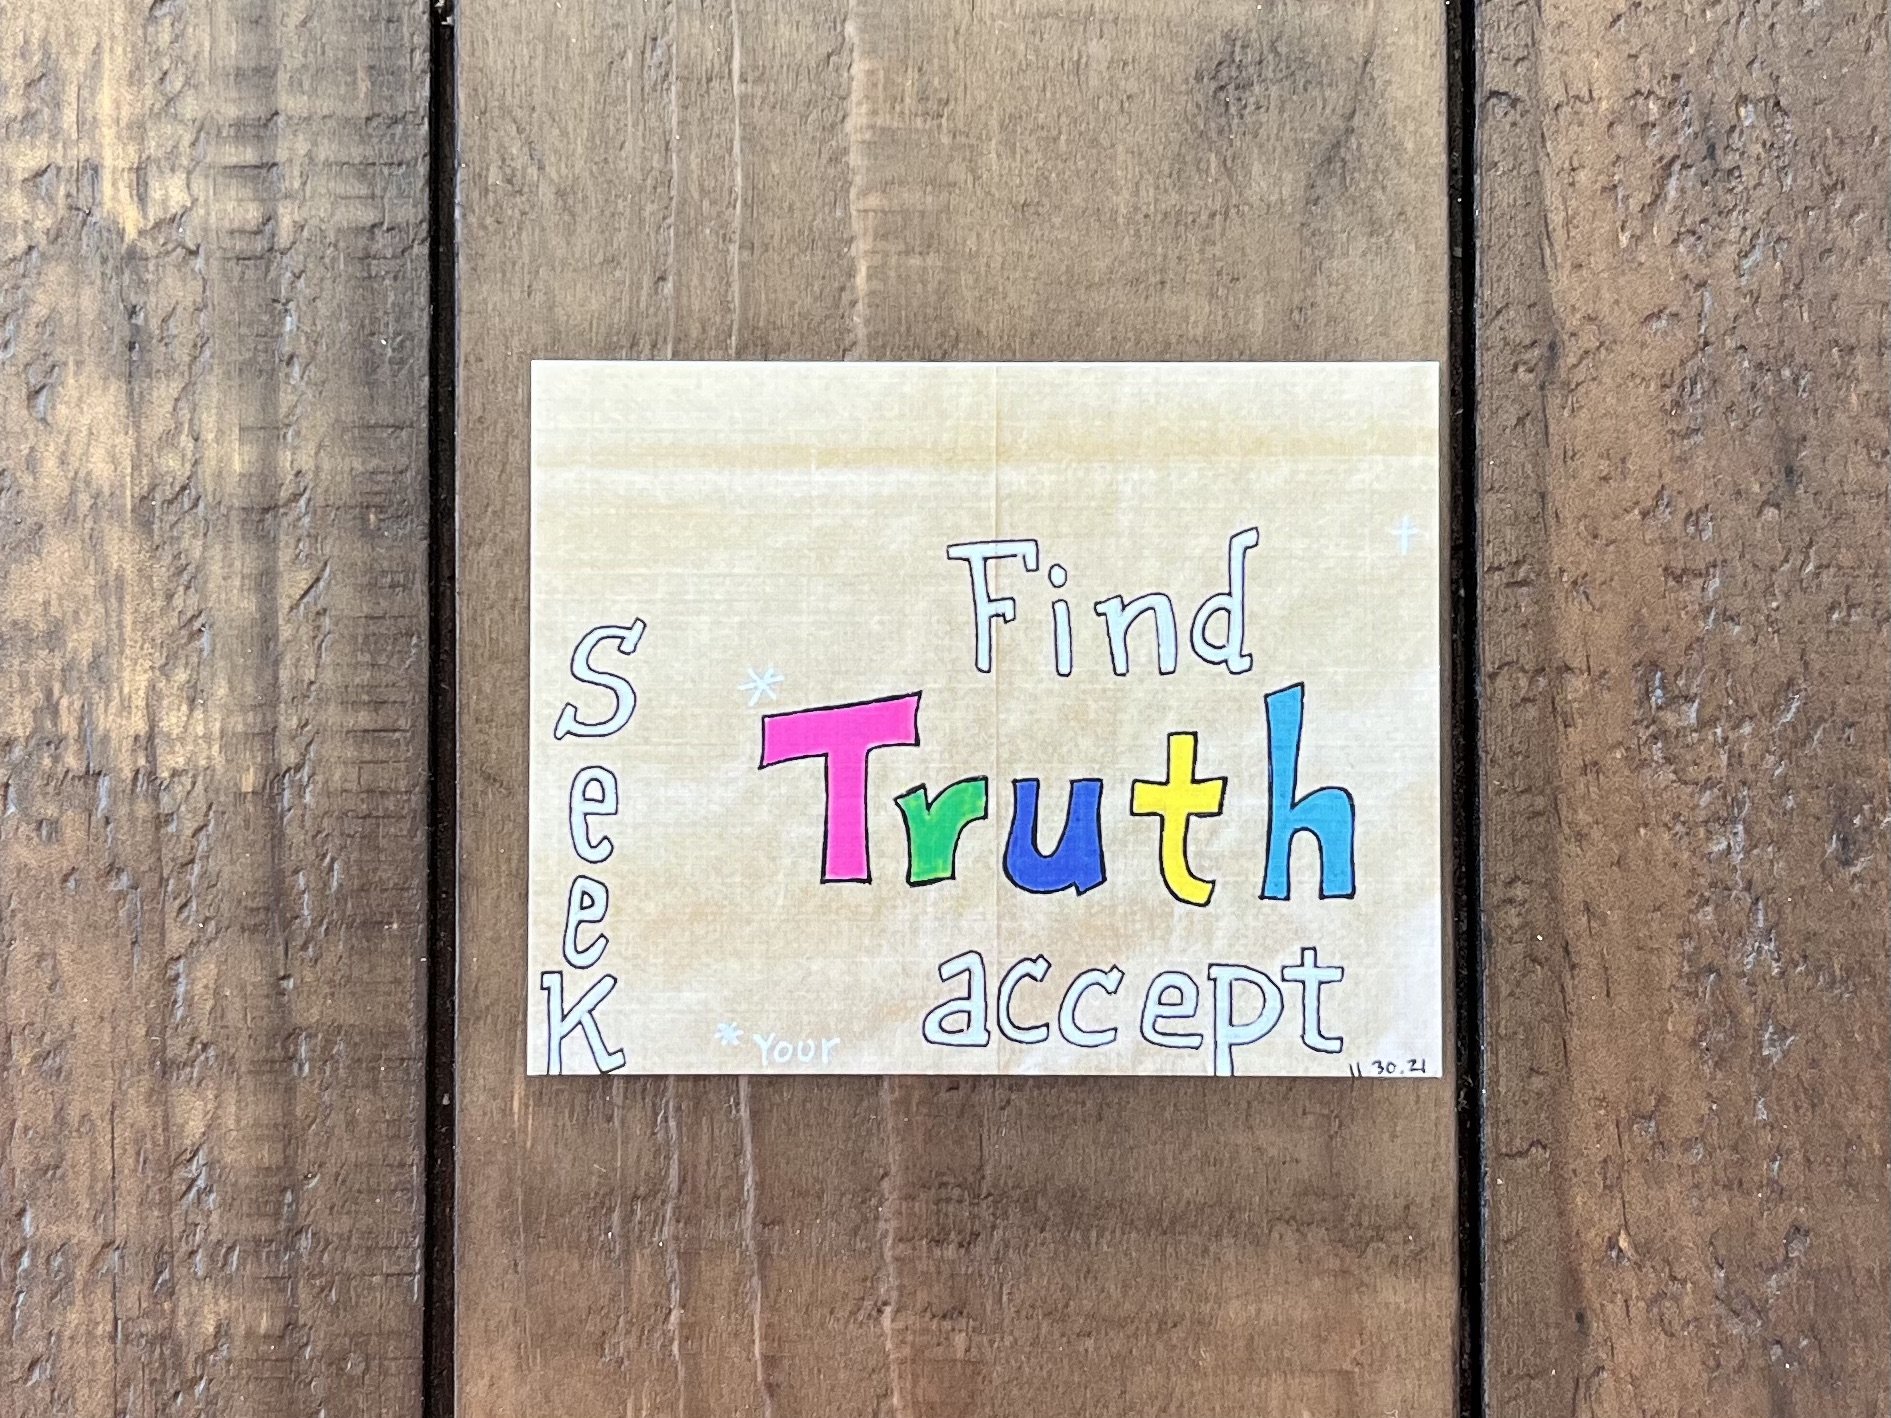 Seek
Find
*Truth
accept
*Your
11 30.21